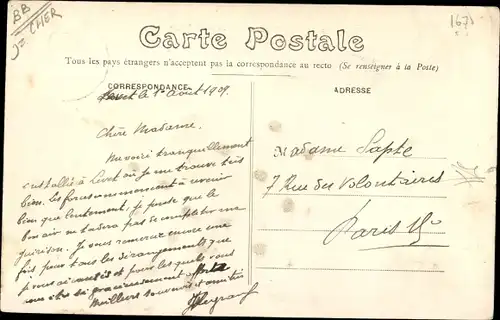 BB
Jt CHER
167
Carte Postale
Tous les pays étrangers n'acceptent pas la correspondance au recto (Se renseigner à la Poste)
CORRESPONDANCE
ADRESSE
Levet le 1er Août 1909.
Chère Madame,
Me voici tranquillement
installée à Levet où je me trouve très
bien. les forces commencent à revenir
bien que lentement. Je pense que le
bon air ne tardera pas de compléter ma
guérison. Je vous remercie encore une
fois pour tous les dérangements que
je vous ai causés et pour lesquels vous
vous êtes si gracieusement
Meilleurs souvenirs et amitiés
Madame Sapte
7 Rue des Volontaires
Paris 15e